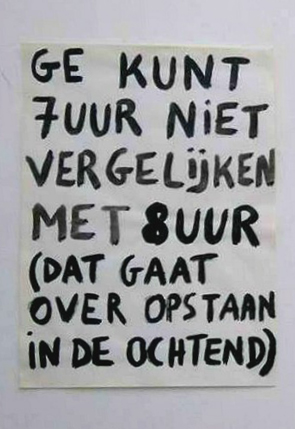 GE KUNT
7UUR NiET
VERGELijKEN
MET 8UUR
(DAT GAAT
OVER OPSTAAN
iN DE OCHTEND)